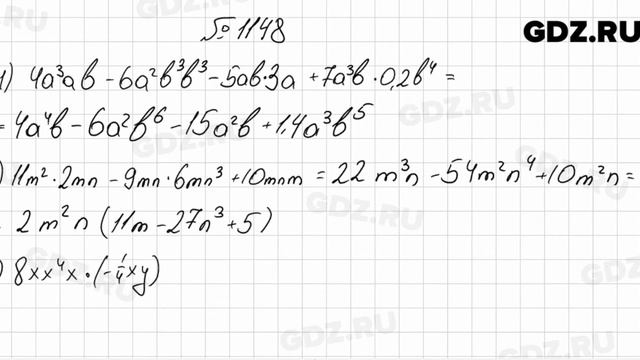 № 1148
GDZ.RU
1) 4a³ab - 6a²b³b³ - 5ab·3a + 7a³b · 0,2b⁴ =
= 4a⁴b - 6a²b⁶ - 15a²b + 1,4a³b⁵
) 11m² · 2mn - 9mn · 6mn³ + 10mnm = 22 m³n - 54m²n⁴ + 10m²n =
2m²n (11m - 27n³ + 5)
) 8xx⁴x · (-1/4xy)
GDZ.RU
GDZ.RU
GDZ.RU
GDZ.RU
GDZ.RU